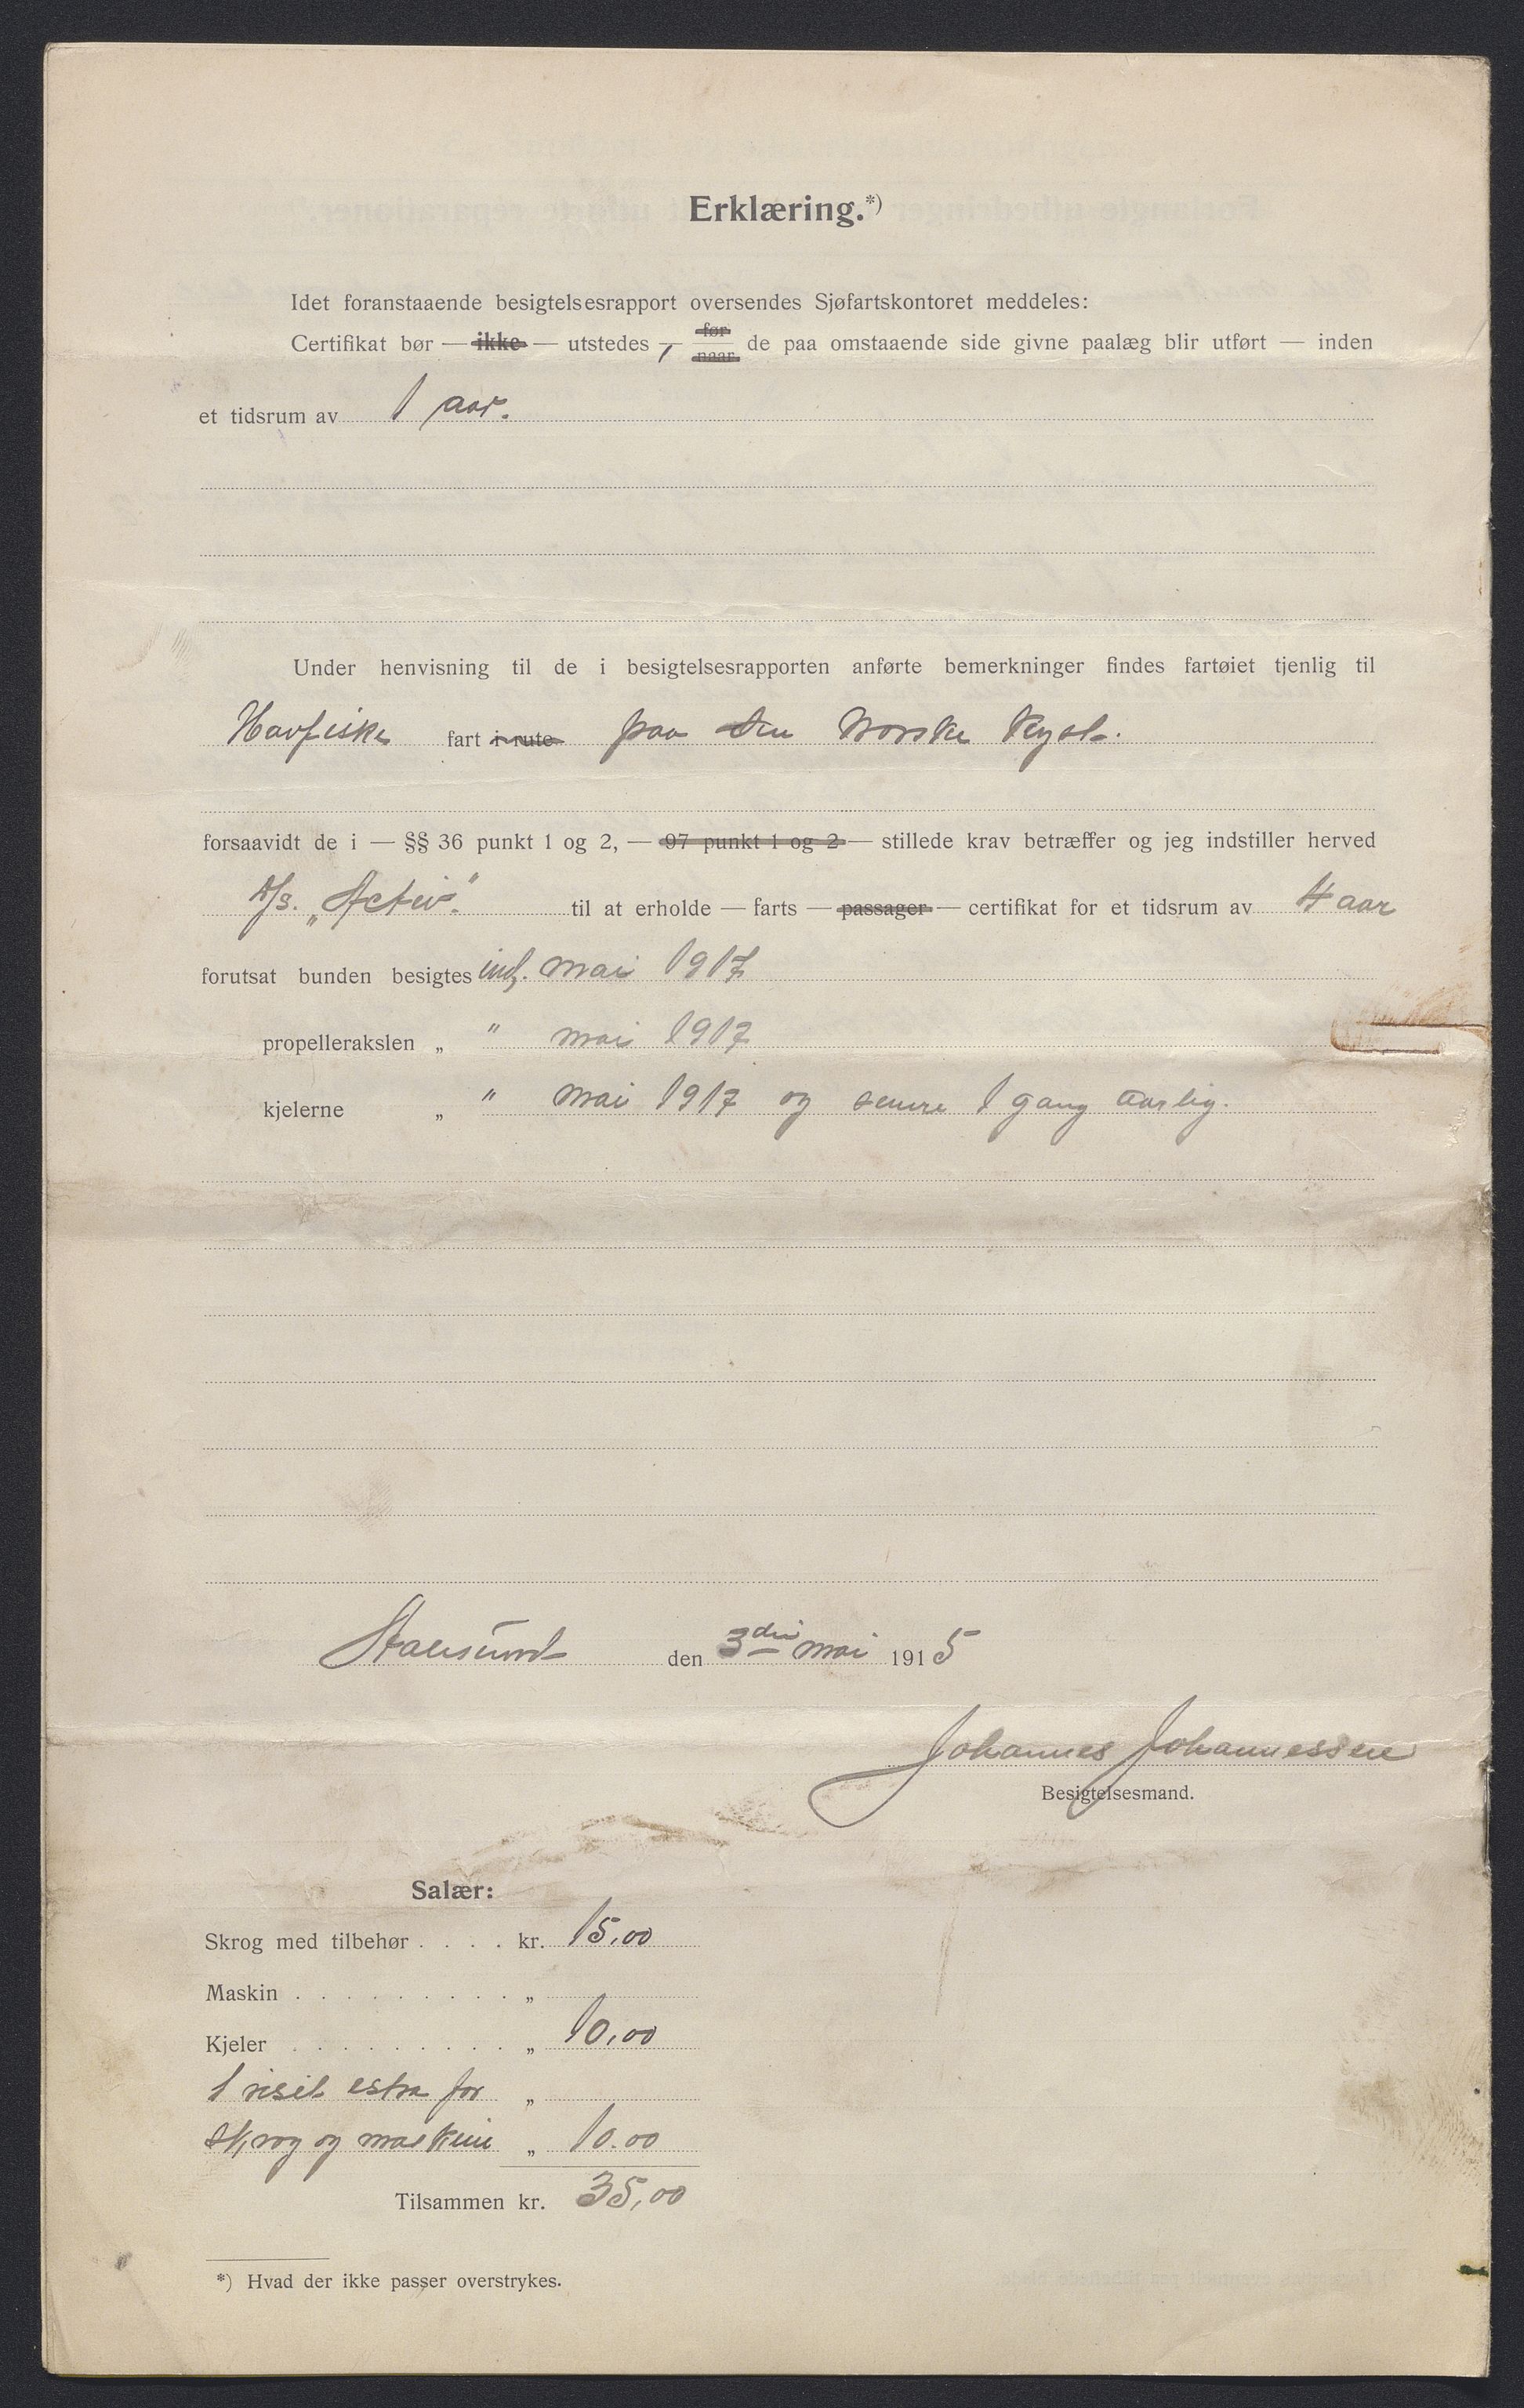 Erklæring.*)
Idet foranstaaende besigtelsesrapport oversendes Sjøfartskontoret meddeles:
Certifikat bør — ikke — utstedes —, før naar de paa omstaaende side givne paalæg blir utført — inden
et tidsrum av 1 aar.
Under henvisning til de i besigtelsesrapporten anførte bemerkninger findes fartøiet tjenlig til
Havfiske fart i rute paa den Norske Kyst.
forsaavidt de i — §§ 36 punkt 1 og 2, — 97 punkt 1 og 2 — stillede krav betræffer og jeg indstiller herved
„Activ“ til at erholde — farts — passager — certifikat for et tidsrum av 4 aar
forutsat bunden besigtes inds. mai 1917
propellerakslen „ " mai 1917
kjelerne „ " mai 1917 og senere 1 gang aarlig.
den 3die mai 1915
Johannes Johannessen
Besigtelsesmand.
Salær:
Skrog med tilbehør . . . . kr. 15,00
Maskin . . . . . . . . . . „
Kjeler . . . . . . . . . . „ 10,00
1 visit extra for „
Skrog og maskine „ 10.00
Tilsammen kr. 35,00
*) Hvad der ikke passer overstrykes.